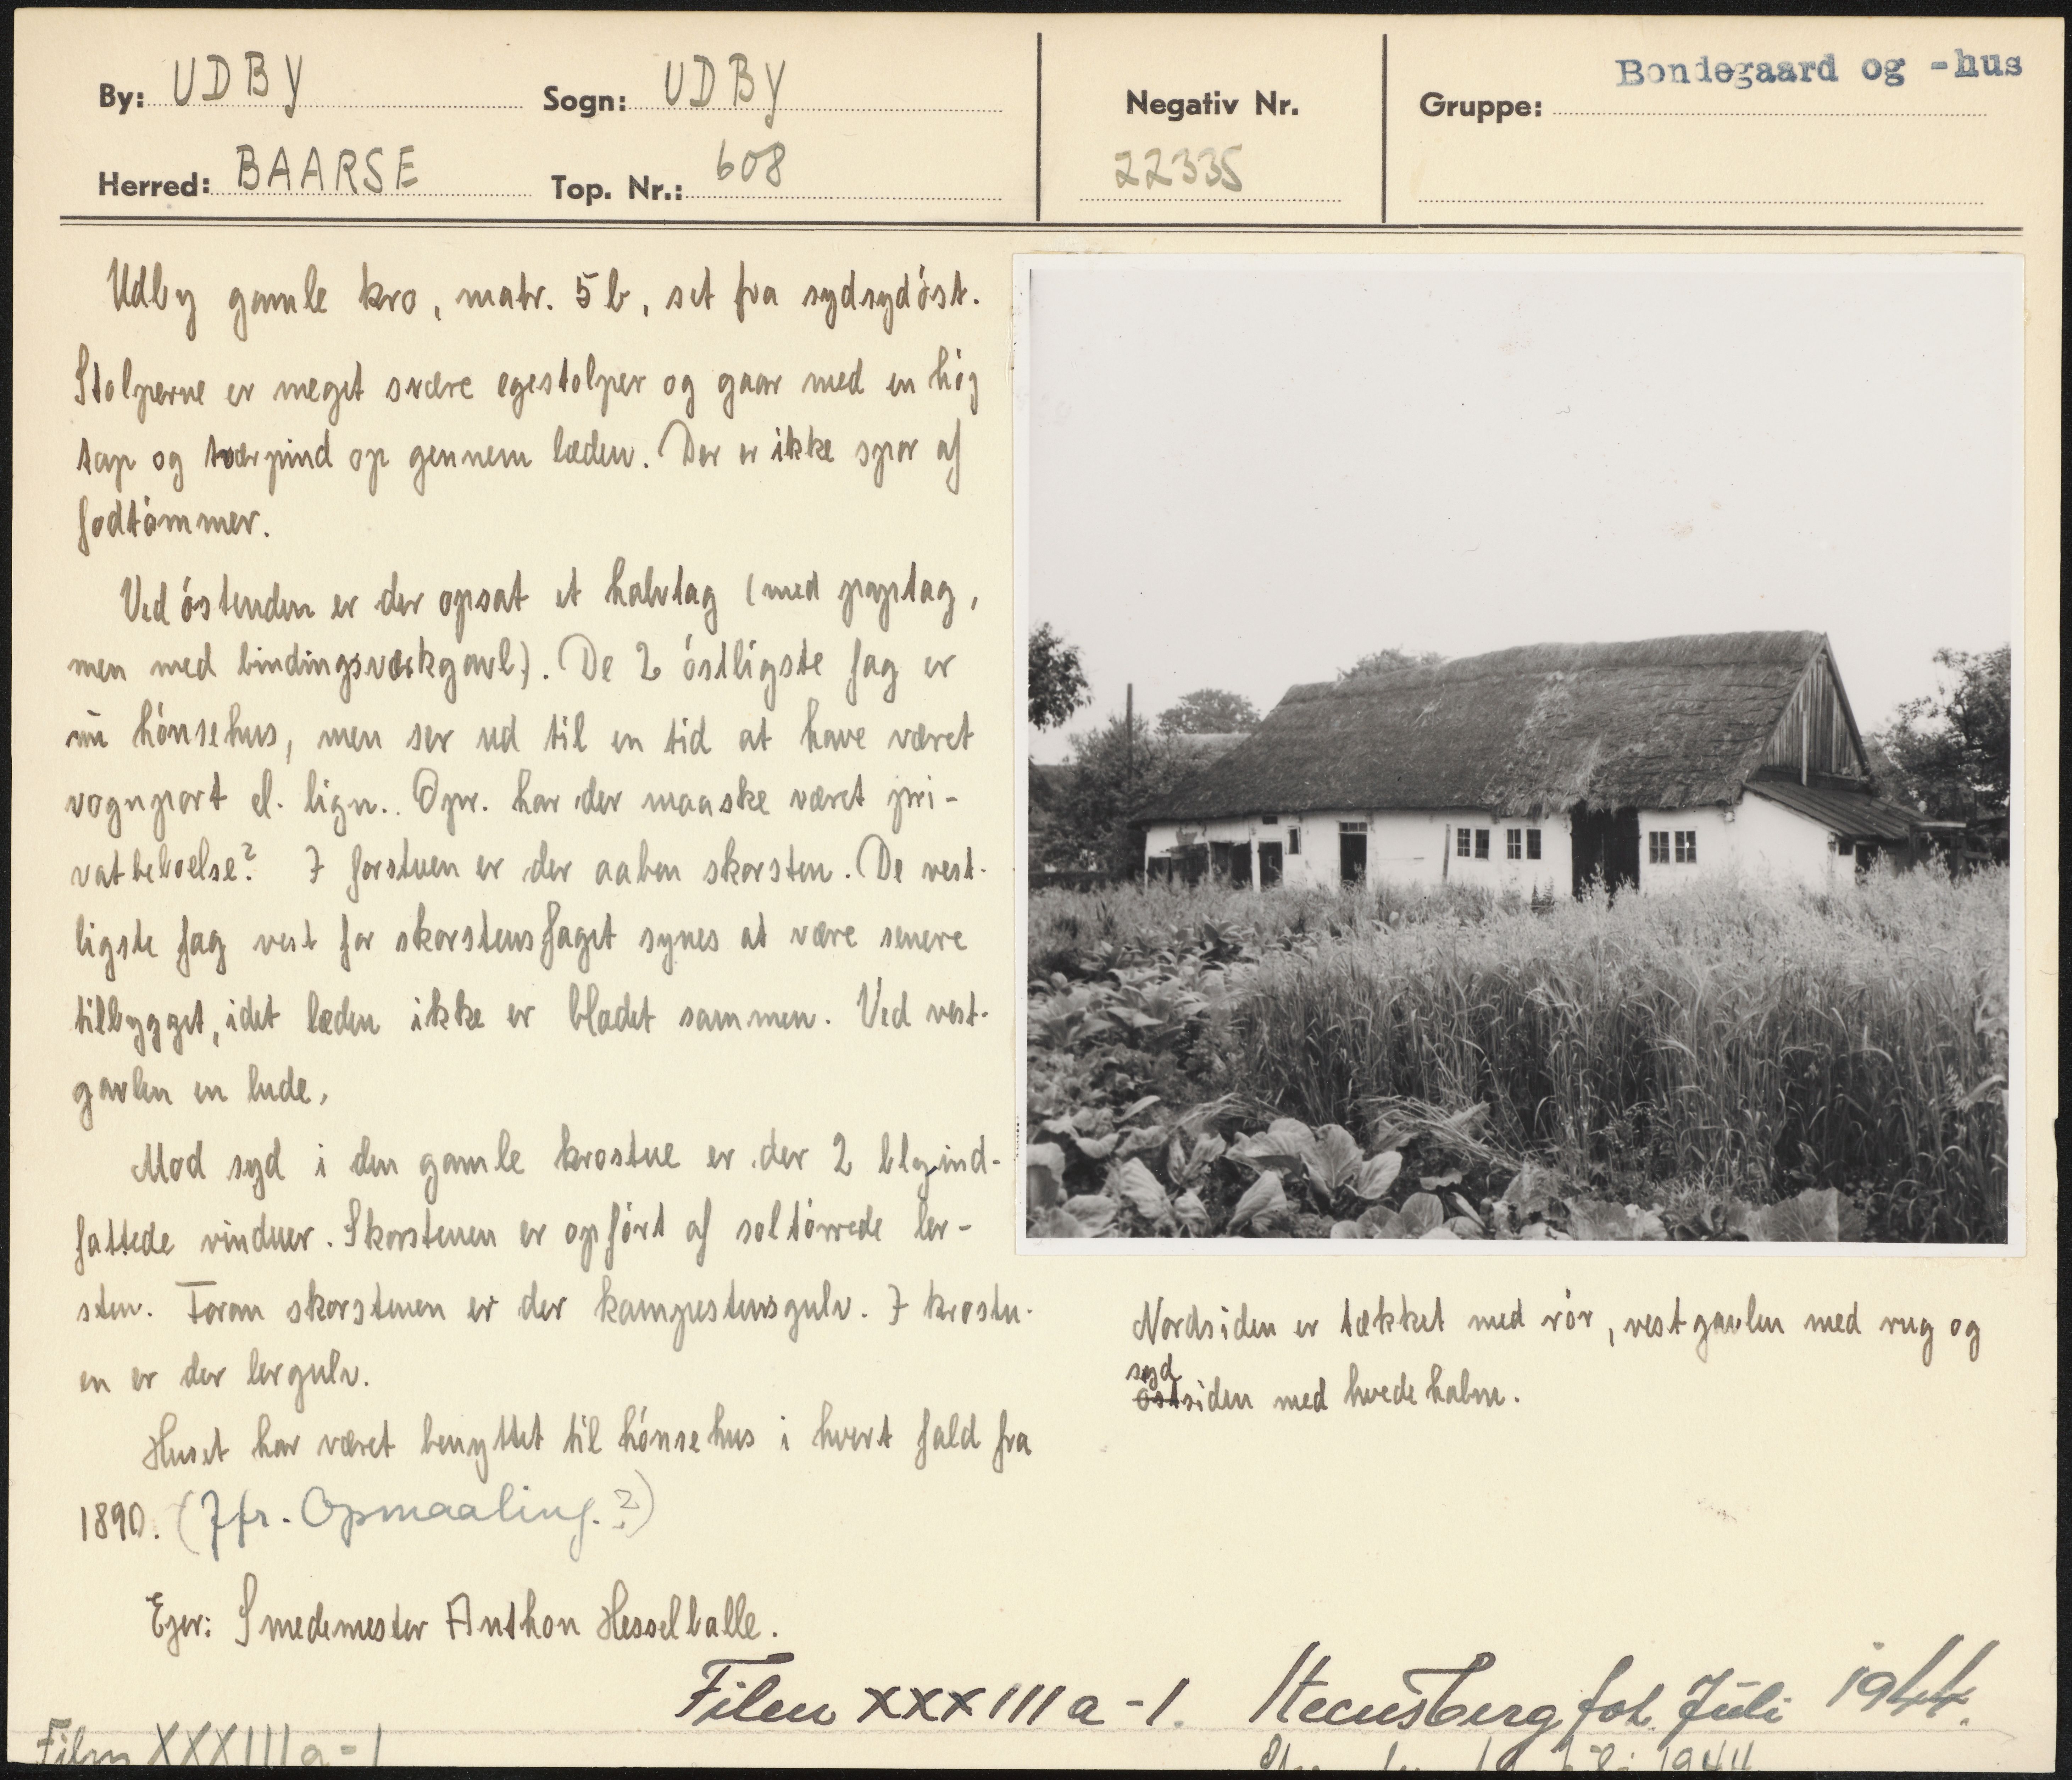 By: UDBY Sogn: UDBY
Herred: BAARSE Top. Nr.: 608
Negativ Nr.
22335
Gruppe: Bondegaard og -hus
Udby gamle kro, matr. 5 b, set fra sydsydöst.
Stolperne er meget svære egestolper og gaar med en höj
tap og tværpind op gennem læden. Der er ikke spor af
fodtömmer.
Ved östenden er der opsat et halvtag (med paptag,
men med bindingsværkgavl). De 2 östligste fag er
nu hönsehus, men ser ud til en tid at have været
vognport el. lign.. Opr. har der maaske været pri-
vatbeboelse? I forstuen er der aaben skorsten. De vest-
ligste fag vest for skorstensfaget synes at være senere
tilbygget, idet læden ikke er bladet sammen. Ved vest-
gavlen en lude.
Mod syd i den gamle krostue er der 2 blyind-
fattede vinduer. Skorstenen er opfört af soltörrede ler-
sten. Foran skorstenen er der kampestensgulv. I krostu-
en er der lergulv.
Huset har været benyttet til hönsehus i hvert fald fra
1890. (Jfr. Opmaaling.?)
Ejer: Smedemester Anthon Hesselballe.
Nordsiden er tækket med rör, vestgavlen med rug og
syd
östsiden med hvedehalm.
Film XXXIIIa-1. Steensberg fot. Juli 1944.
Film XXXIIIa-1
Juli 1944